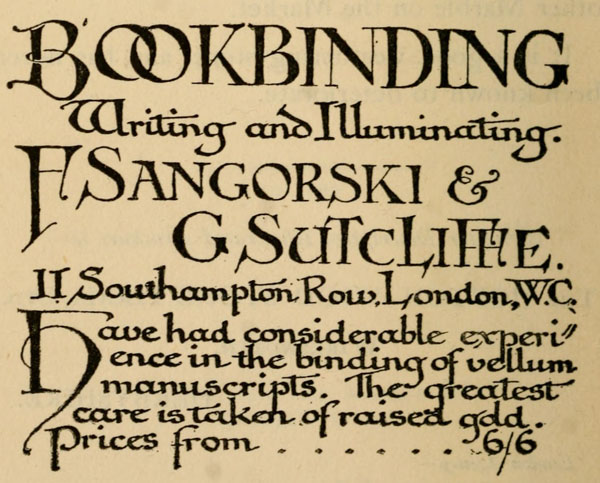 BOOKBINDING
Writing and Illuminating.
F. SANGORSKI &
G. SUTCLIFFE.
11, Southampton Row, London, W.C.
Have had considerable experi-
ence in the binding of vellum
manuscripts. The greatest
care is taken of raised gold.
Prices from . . . . . . . 6/6